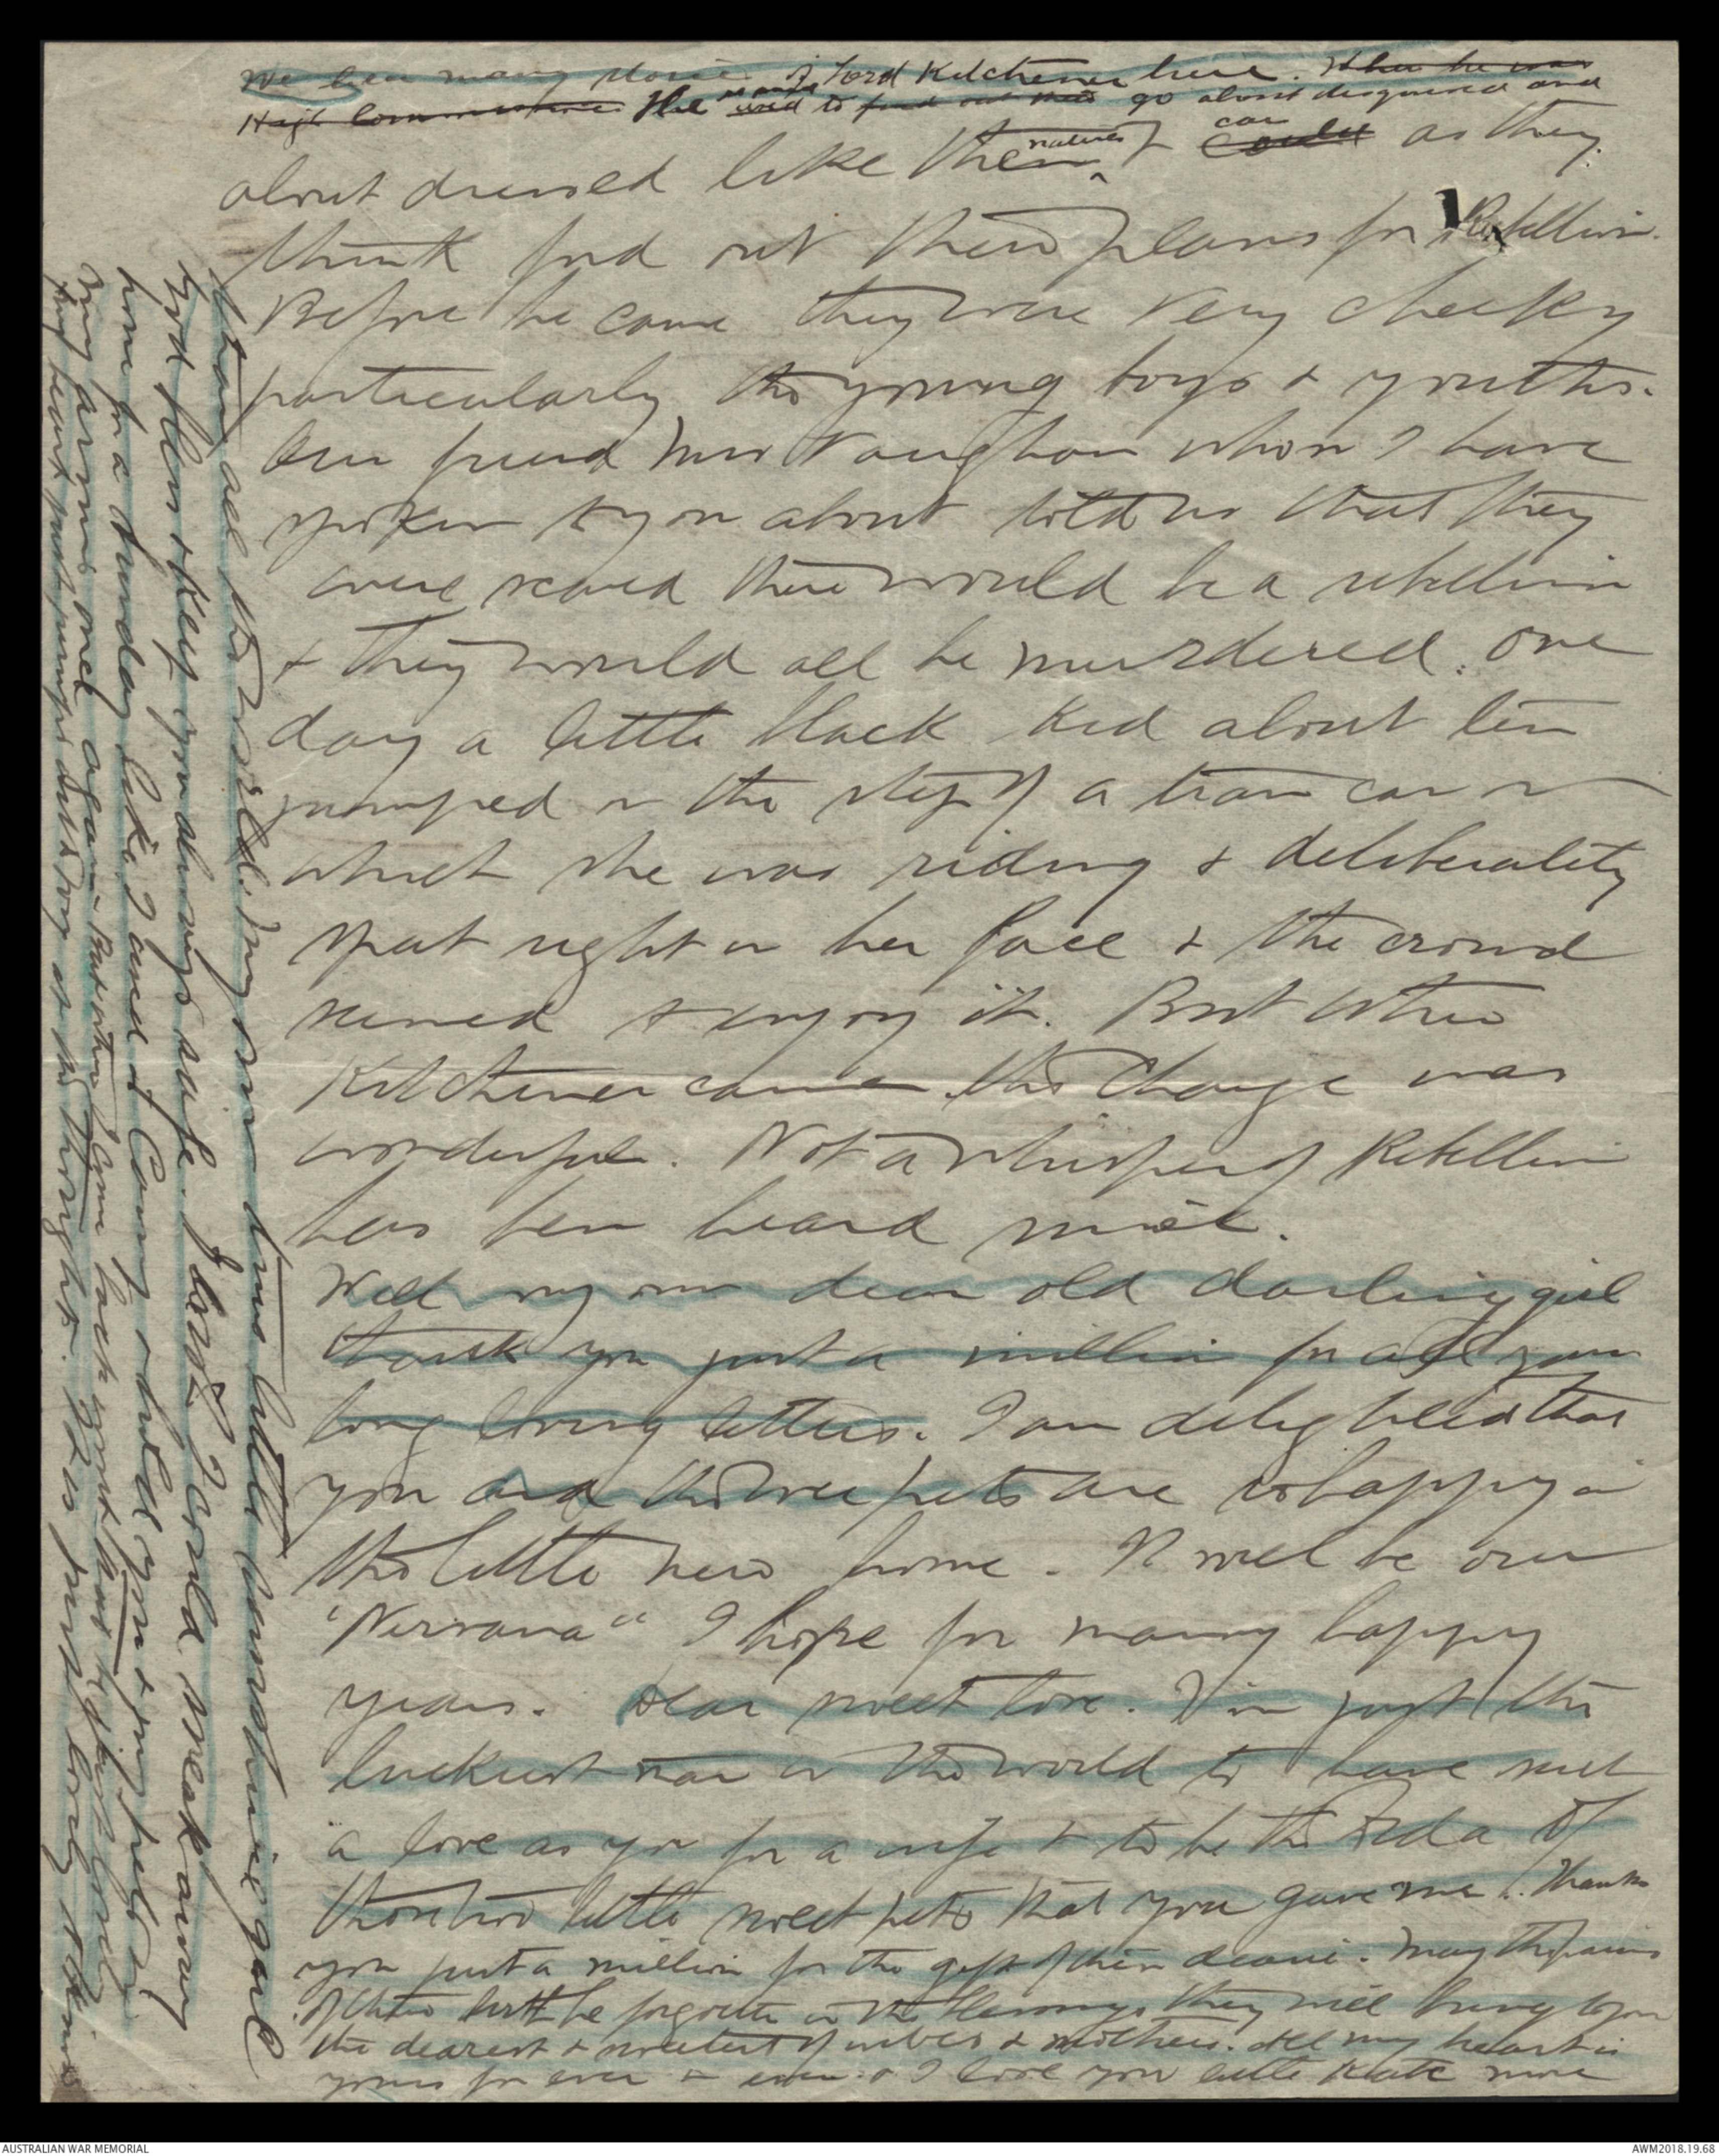 We hear many stories of Lord Kitchener here. When he was
High Commissioner He used to find out their go about disguised and
about dressed like them natives & could can as they
think find out their plans for Rebellion.
Before he came they were very cheeky
particularly the young boys & youths.
Our friend Mrs Vaughan whom I have
spoken to you about told us that they
were scared there would be a rebellion
& they would all be murdered. One
day a little black kid about ten
jumped on the step of a tram car in
which she was riding & deliberately
spat right in her face & the crowd
seemed to enjoy it. But when
Kitchener came the change was
wonderful. Not a whisper of Rebellion
has been heard since.
Well my own dear old darling girl
thank you just a million for all your
long loving letters. I am delighted that
you and the wee pets are so happy in
the little new home. It will be our
"Nirvana" I hope for many happy
years. Dear sweet love. I'm just the
luckiest man in the world to have such
a love as you for a wife & to be the Dada of
those two little sweet pets that you gave me. Thank
you just a million for the gift of them dearie. May the pains
of their birth be forgotten in the blessings they will bring to you
the dearest & sweetest of wives & mothers. All my heart is
yours for ever & ever & I love you little Kate more
than all the world. My own true little sunshine girl
God bless & keep you always safe. I wish I could sneak away
home for a Sunday like I used to & cuddle you & my pets in
my arms once again. But when I come back you'll have to
my heart just jumps at the thought. It is just lonely